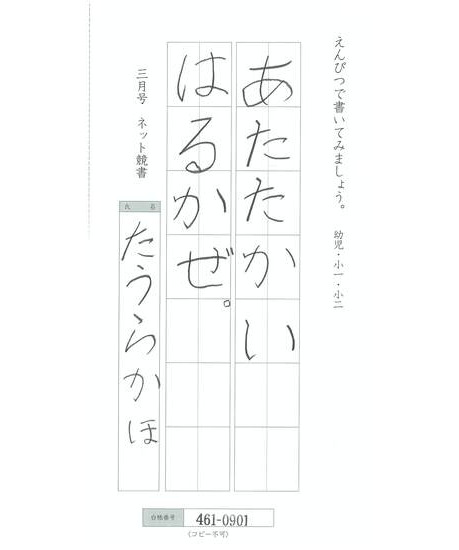 えんぴつで書いてみましょう。
幼児・小一・小二
あたたかい
はるかぜ。
三月号 ネット競書
氏名
たうらかほ
合格番号 461-0901
(コピー不可)